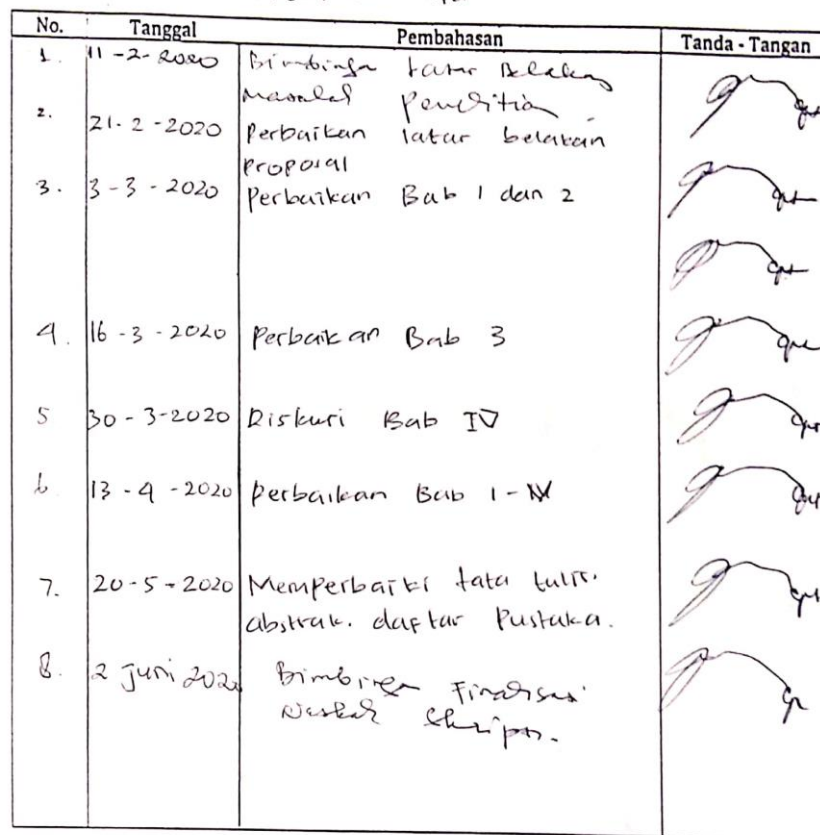 No. Tanggal Pembahasan Tanda - Tangan
1. 11-2-2020 Bimbinga Latar Belakang
Masalah Penelitian
2. 21-2-2020 Perbaikan latar belakan
proposal
3. 3-3-2020 Perbaikan Bab 1 dan 2
4. 16-3-2020 Perbaikan Bab 3
5 30-3-2020 Diskusi Bab IV
6. 13-4-2020 Perbaikan Bab 1-IV
7. 20-5-2020 Memperbaiki tata tulis.
abstrak. daftar Pustaka.
8. 2 Juni 2020 Bimbingan Finalisasi
Naskah Skripsi.